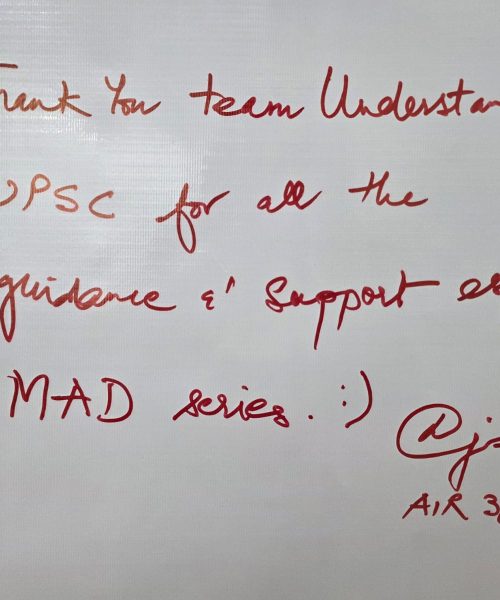 Thank You team Understan
UPSC for all the
guidance & Support es
MAD series. :)
AIR 3